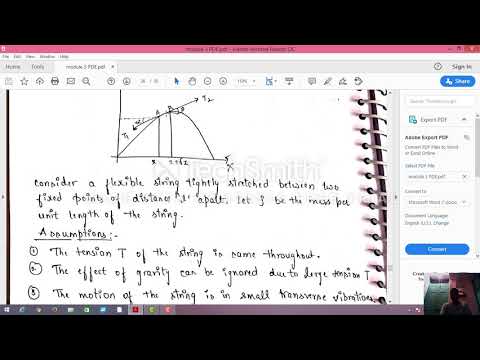 module 3 PDF.pdf - Adobe Acrobat Reader DC
Home
Tools
module 3 PDF.pdf
Sign In
Share
T2
T1
A
B
x
x+δx
X
TechSmith
Consider a flexible string tightly stretched between two
fixed points of distance 'l' apart. Let ρ be the mass per
unit length of the string.
Assumptions:-
① The tension T of the string is same throughout.
② The effect of gravity can be ignored due to large tension T
③ The motion of the string is in small transverse vibrations
Export PDF
Adobe Export PDF
Convert PDF Files to Word
or Excel Online
Select PDF File
module 3 PDF.pdf
Convert to
Microsoft Word (*.docx)
Document Language:
English (U.S.) Change
Convert